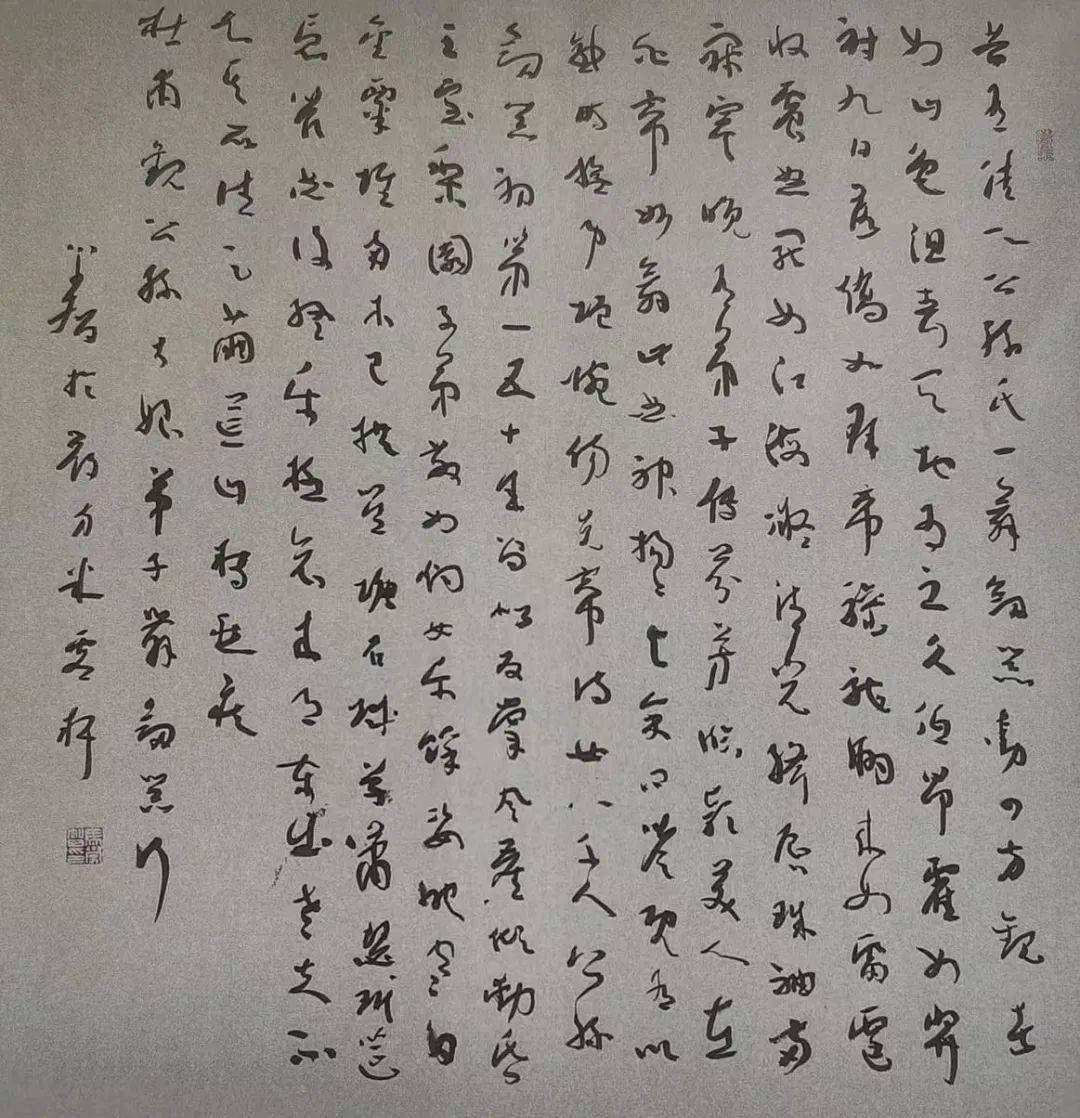 昔有佳人公孫氏一舞劍器動四方觀者
如山色沮喪天地為之久低昂霍如羿
射九日落矯如群帝驂龍翔來如雷霆
收震怒罷如江海凝清光絳唇珠袖兩
寂寞晚有弟子傳芬芳臨潁美人在
白帝妙舞此曲神揚揚與余問答既有以
感時撫事增惋傷先帝侍女八千人公孫
劍器初第一五十年間似反掌風塵傾動昏
王室梨園子弟散如煙女樂餘姿映寒日
金粟堆南木已拱瞿塘石城草蕭瑟玳筵
急管曲復終樂極哀來月東出老夫不
知其所往足繭荒山轉愁疾
杜甫觀公孫大娘弟子舞劍器行
於